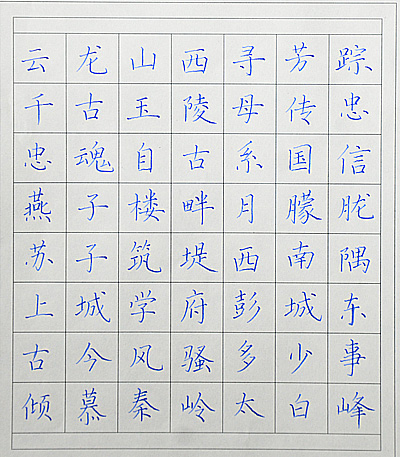 云龙山西寻芳踪
千古玉陵母传忠
忠魂自古系国信
燕子楼畔月朦胧
苏子筑堤西南隅
上城学府彭城东
古今风骚多少事
倾慕秦岭太白峰